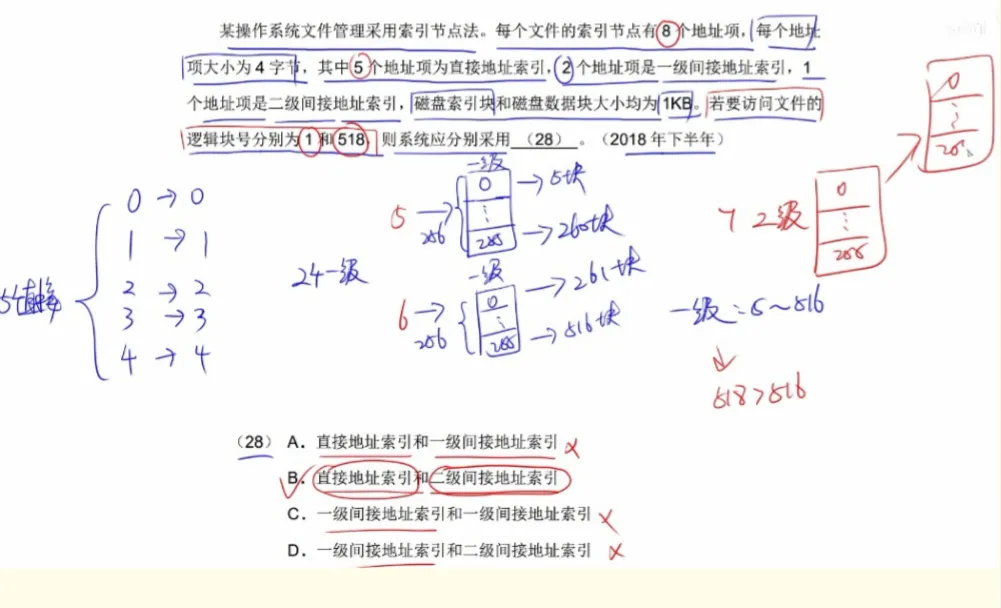 某操作系统文件管理采用索引节点法。每个文件的索引节点有8个地址项，每个地址
项大小为4字节，其中5个地址项为直接地址索引，2个地址项是一级间接地址索引，1
个地址项是二级间接地址索引，磁盘索引块和磁盘数据块大小均为1KB。若要访问文件的
逻辑块号分别为1和518，则系统应分别采用 （28） 。（2018年下半年）
0
⋮
0 → 0
1 → 1
2 → 2
3 → 3
4 → 4
一级
5 →
256
0
⋮
255
→ 5块
→ 260块
24一级
一级
6 →
256
0
⋮
255
→ 261块
→ 516块
7 二级
0
⋮
255
一级：5～516
↓
518>516
（28） A．直接地址索引和一级间接地址索引 ×
✓ B．直接地址索引和二级间接地址索引
C．一级间接地址索引和一级间接地址索引 ×
D．一级间接地址索引和二级间接地址索引 ×